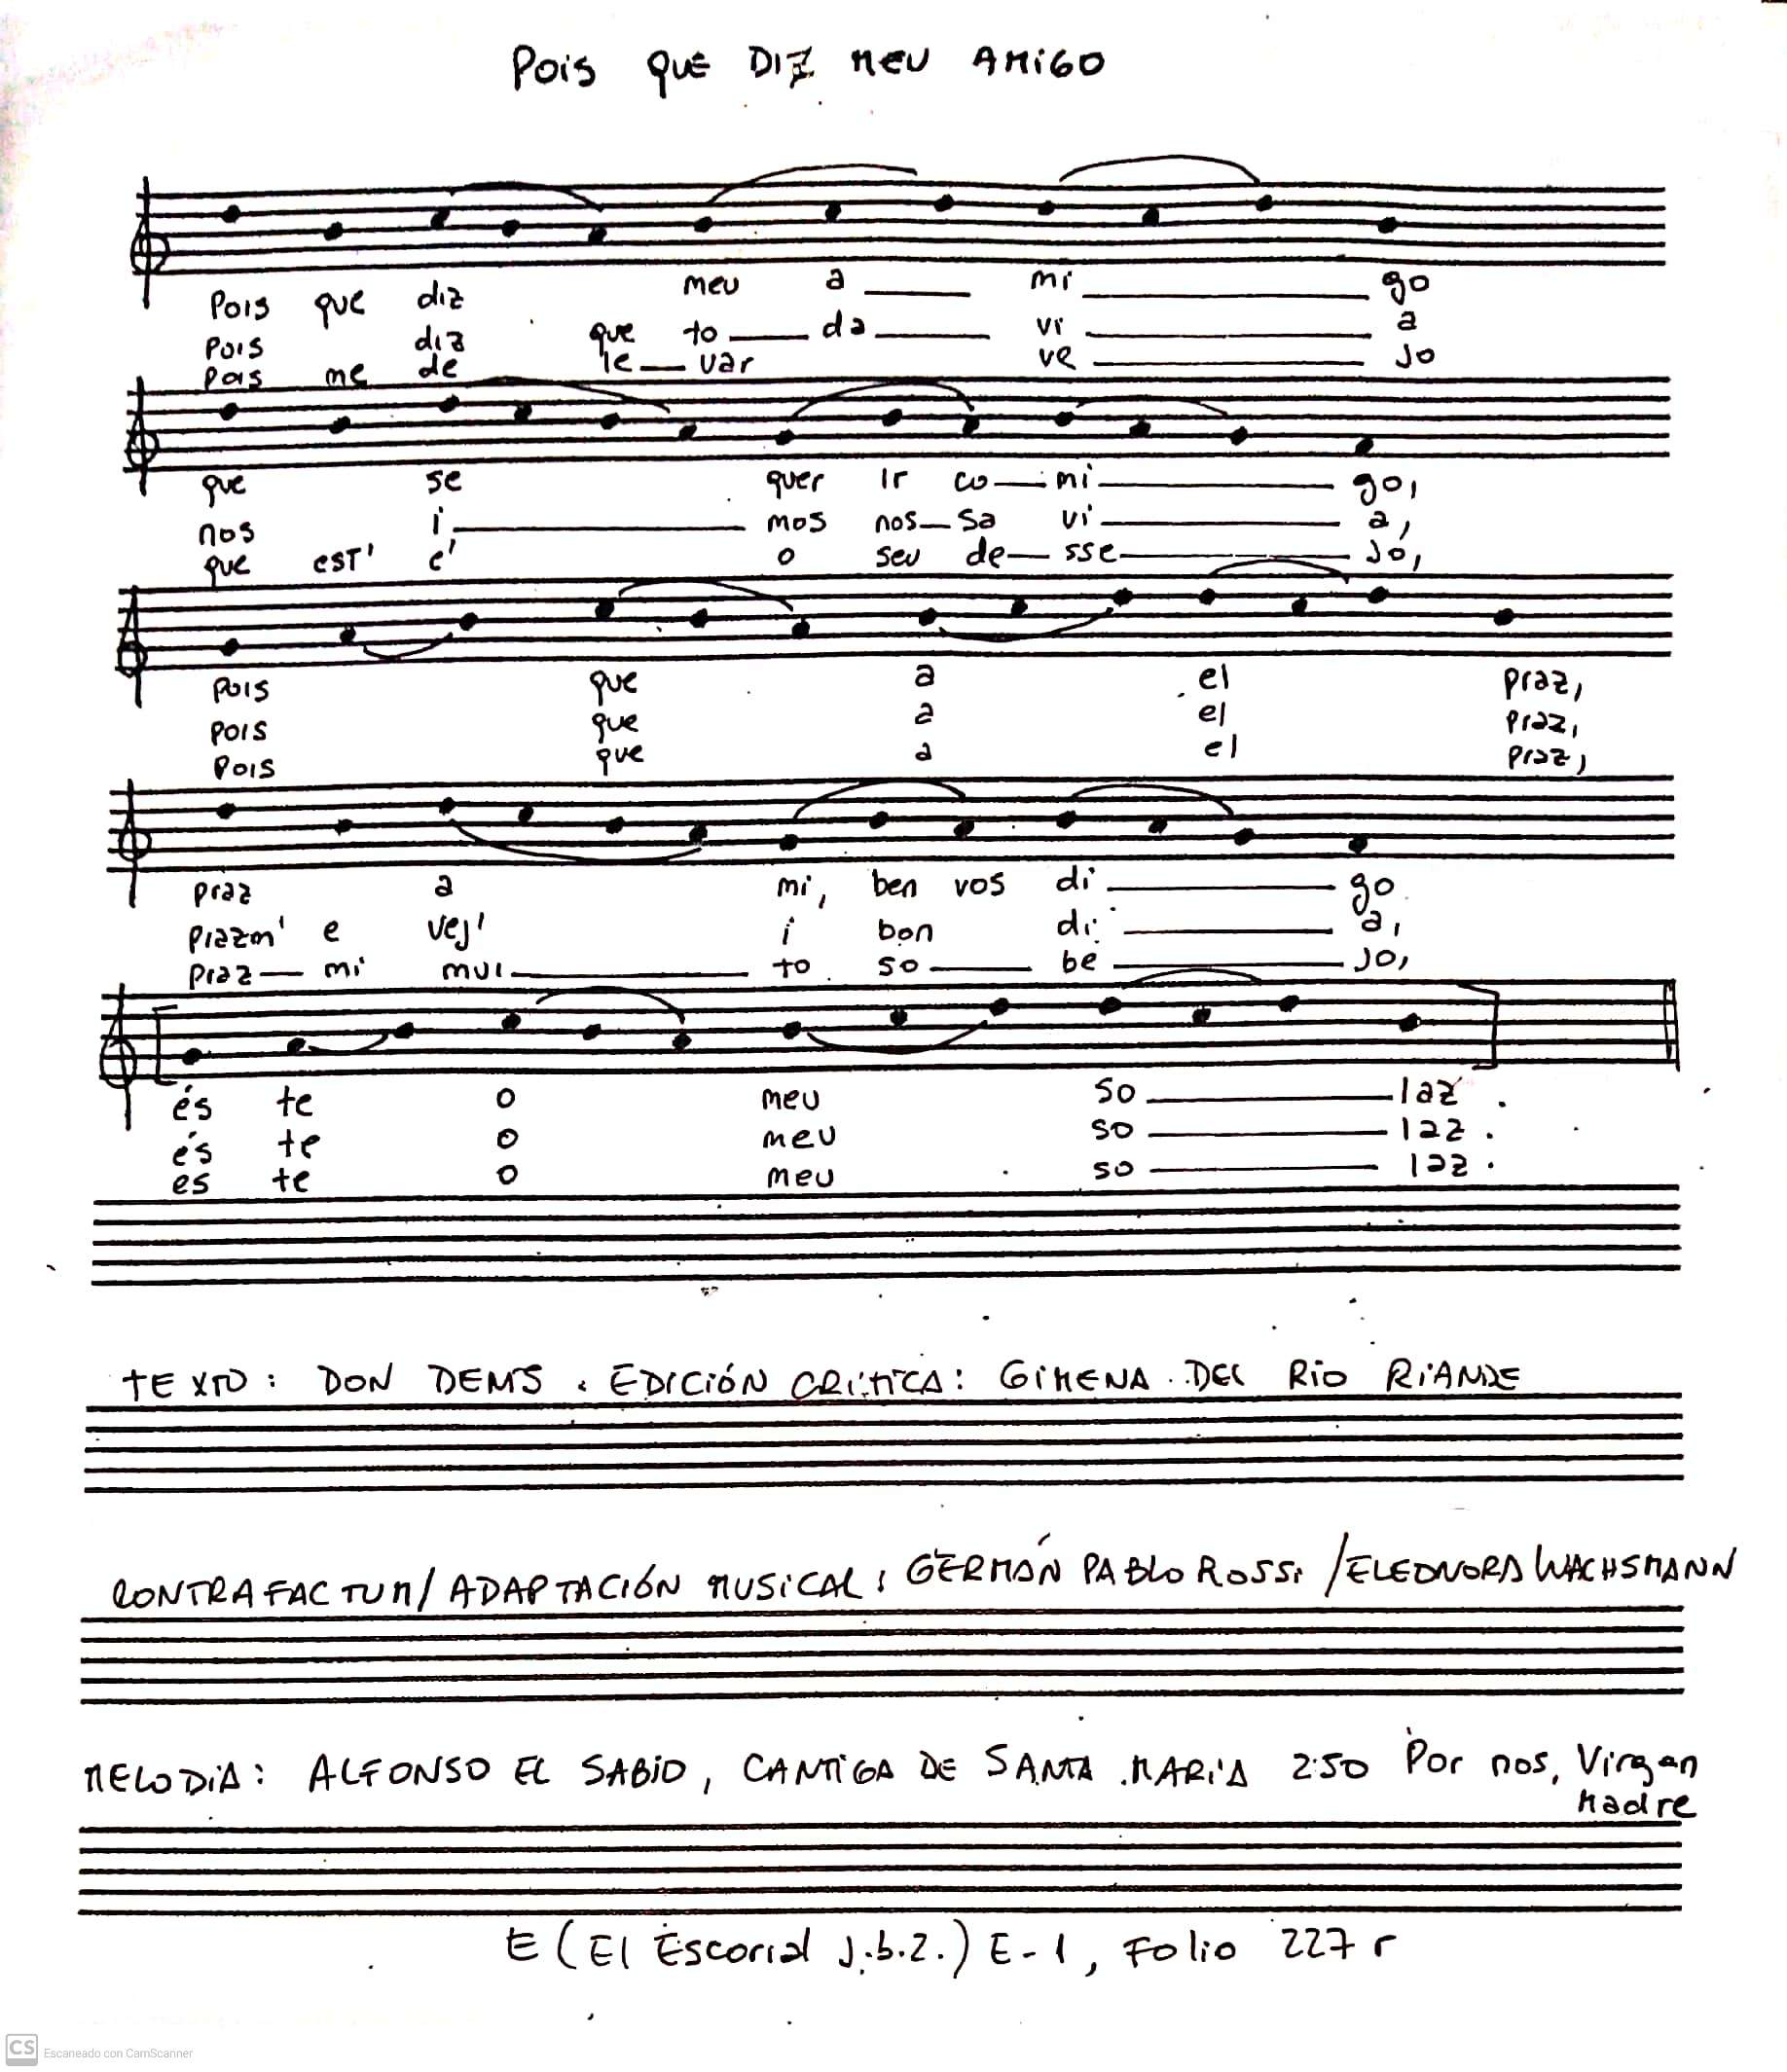 Pois que diz meu amigo
Pois que diz meu a mi go
Pois diz que to da vi a
Pois me de le var ve jo
que se quer ir co mi go,
nos i mos nos sa vi a,
que est' e' o seu de sse jo,
Pois que a el praz,
pois que a el praz,
pois que a el praz,
praz a mi, ben vos di go
prazm' e vej' i bon di a,
praz mi mui to so be jo,
és te o meu so laz.
és te o meu so laz.
es te o meu so laz.
TEXTO: DON DENIS. EDICIÓN CRÍTICA: GIMENA DEL RIO RIANDE
CONTRAFACTUM/ADAPTACIÓN MUSICAL: GERMÁN PABLO ROSSI/ELEONORA WACHSMANN
MELODIA: ALFONSO EL SABIO, CANTIGA DE SANTA MARIA 250 Por nos, Virgen
Madre
E (El Escorial j.b.2.) E-1, Folio 227 r
CS Escaneado con CamScanner